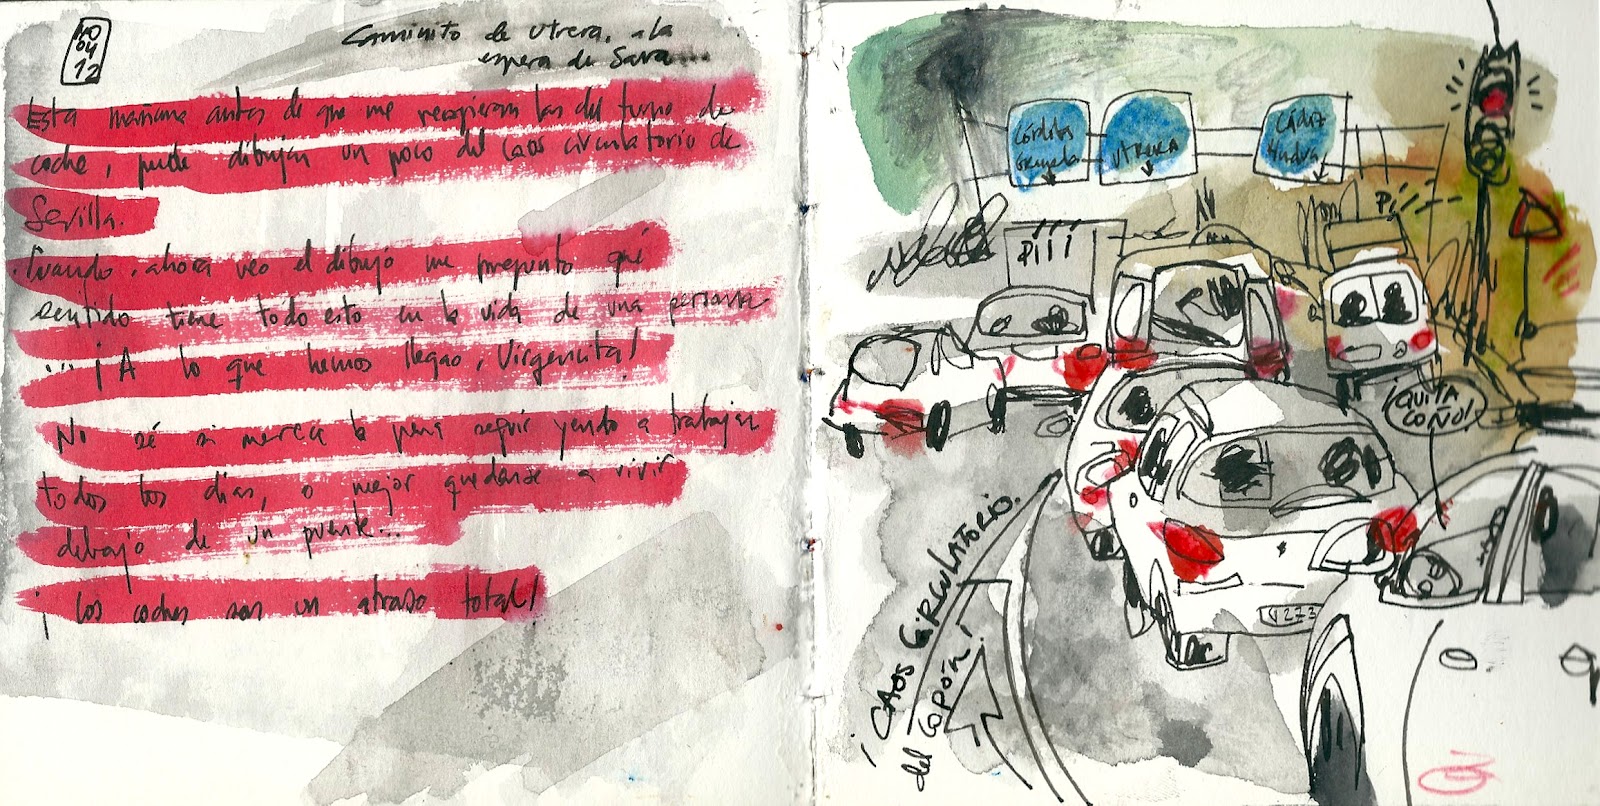 10
04
12
Caminito de Utrera, a la
espera de Sara...
Esta mañana antes de que me recogieran las del turno de
coche, pude dibujar un poco del caos circulatorio de
Sevilla.
Cuando ahora veo el dibujo me pregunto qué
sentido tiene todo esto en la vida de una persona
... ¡A lo que hemos llegao, Virgencita!
No sé si merece la pena seguir yendo a trabajar
todos los días, o mejor quedarse a vivir
debajo de un puente...
¡Los coches son un atraso total!
Córdoba
Granada
UTRERA
Cádiz
Huelva
Piiii
Piiii
¡QUITA
COÑO!
¡CAOS CIRCULATORIO
del COPÓN!
273